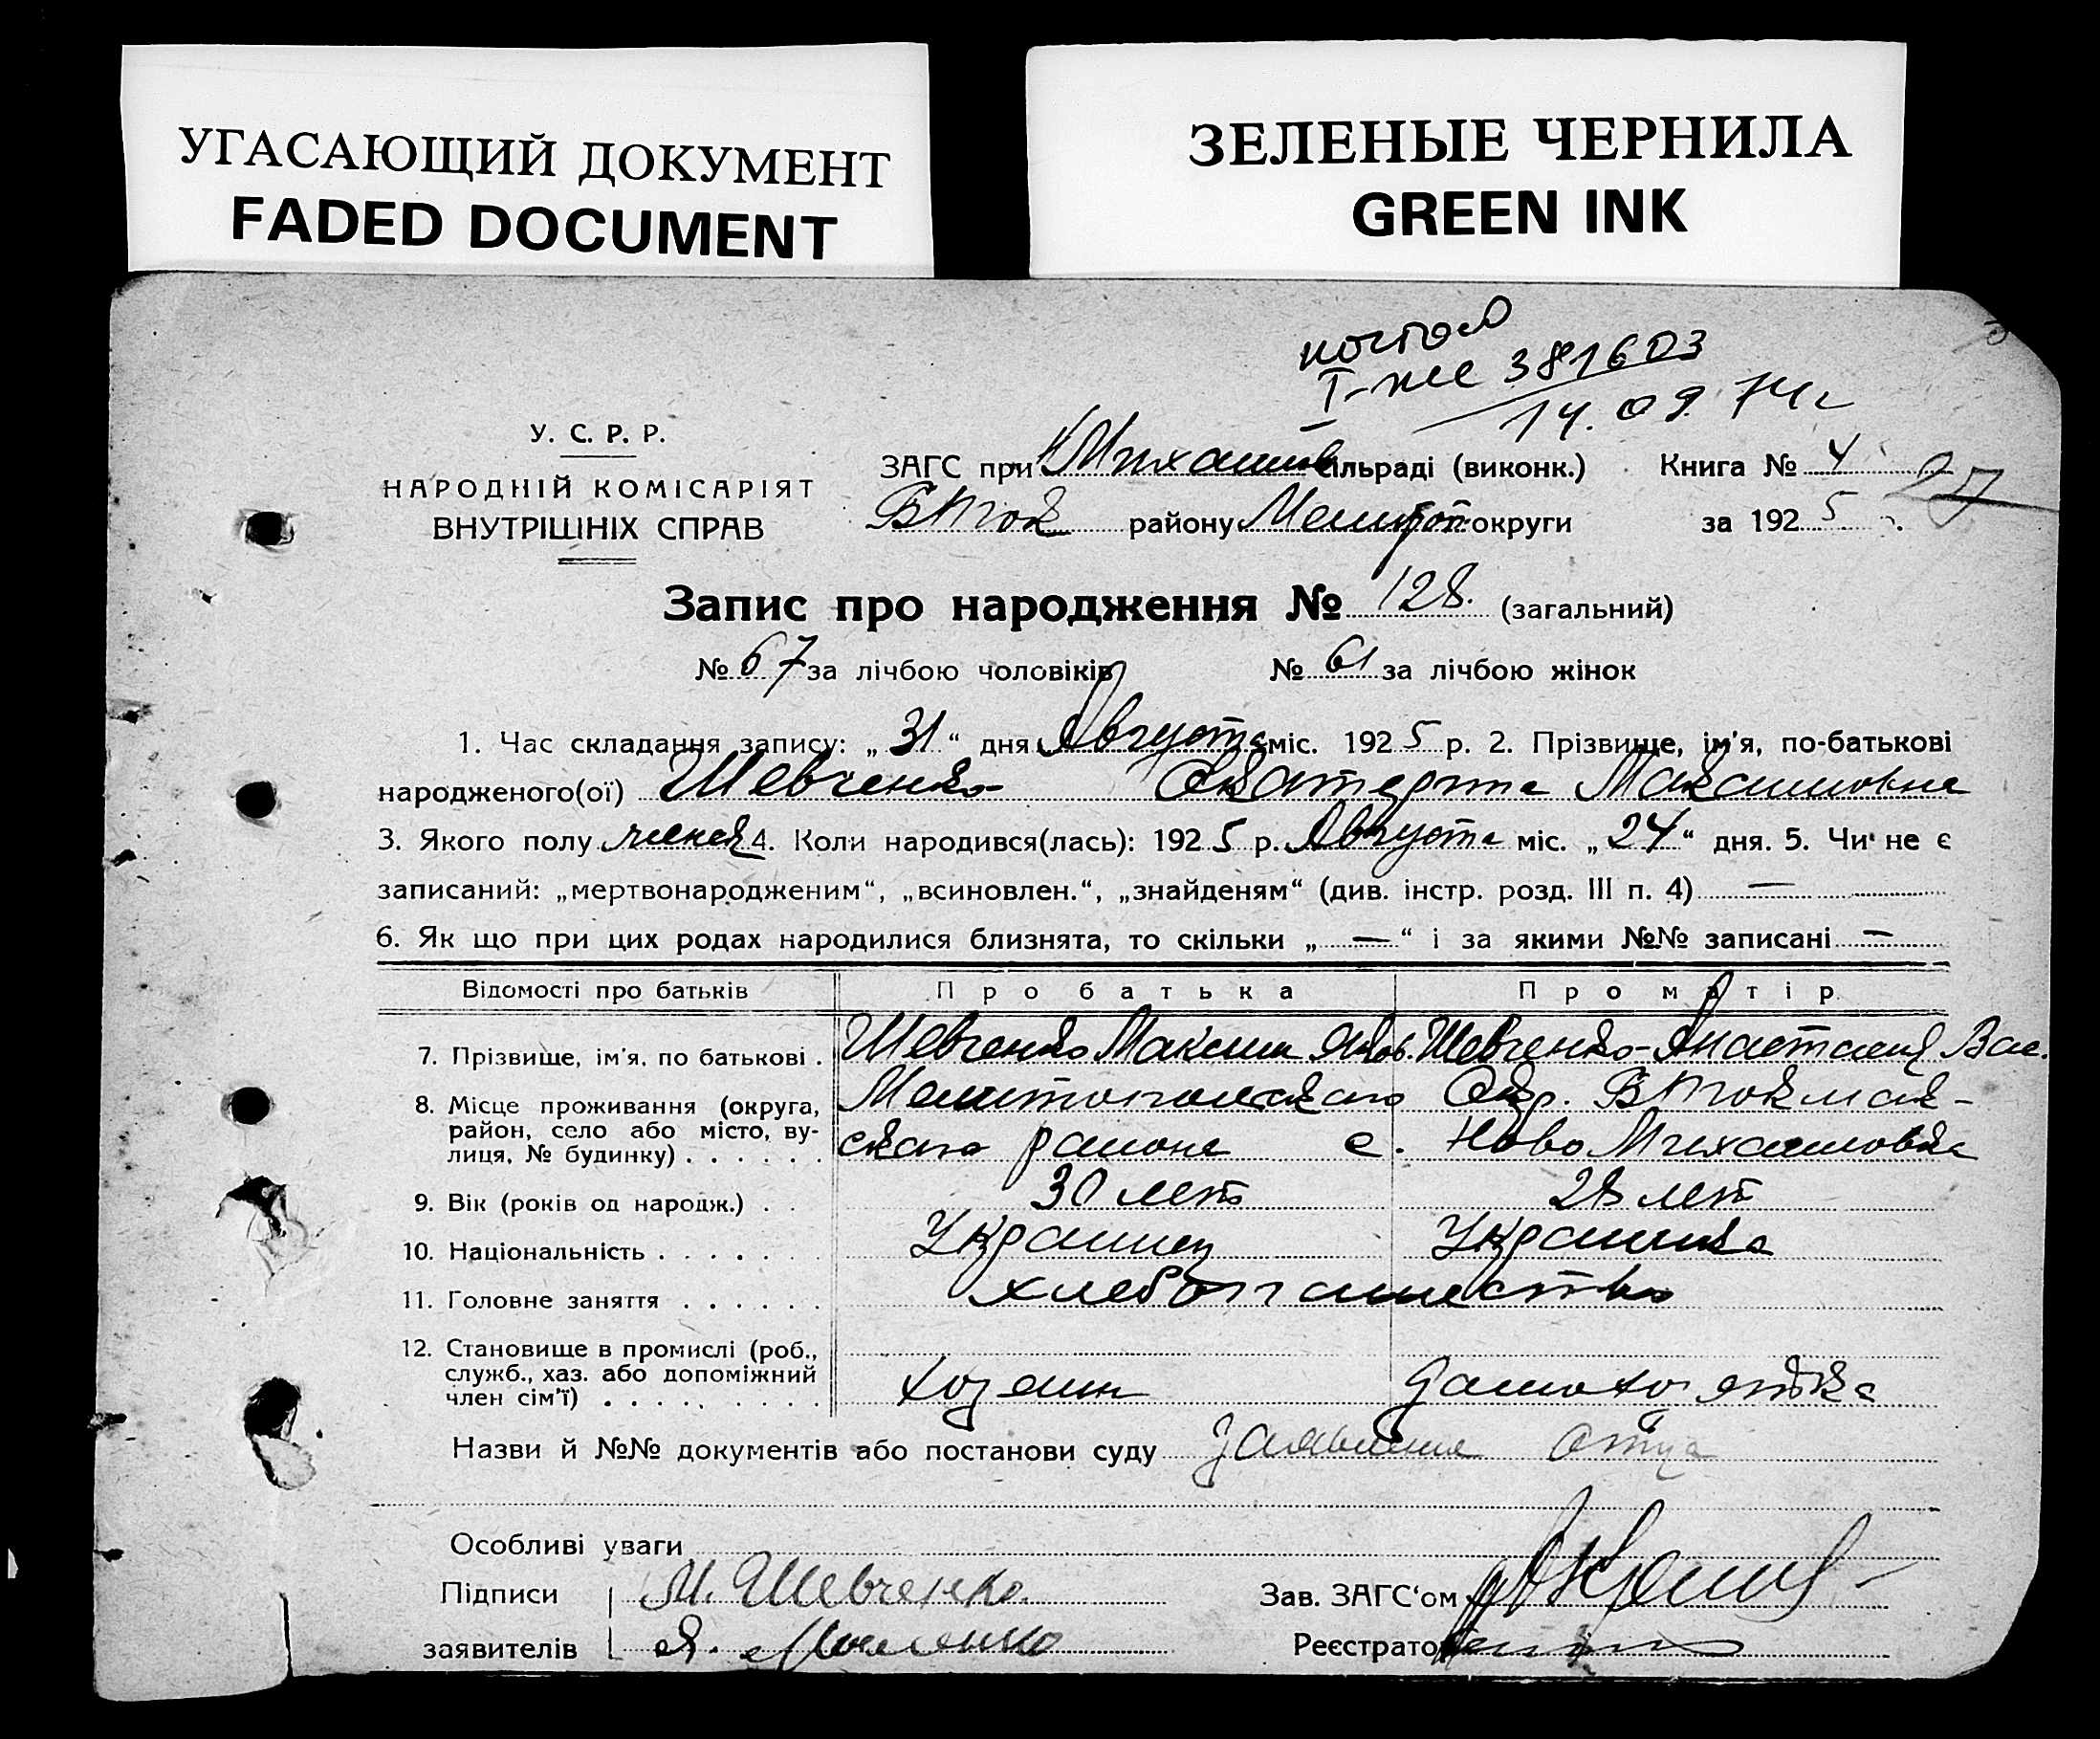 УГАСАЮЩИЙ ДОКУМЕНТ
FADED DOCUMENT
ЗЕЛЕНЫЕ ЧЕРНИЛА
GREEN INK
381603
14.09.74г
У. С. Р. Р.
НАРОДНІЙ КОМІСАРІЯТ
ВНУТРІШНІХ СПРАВ
ЗАГС при Михайлов сільраді (виконк.) Книга № 4
27
БТок району Мелитоп округи за 1925 р.
Запис про народження № 128. (загальний)
№ 67 за лічбою чоловіків № 61 за лічбою жінок
1. Час складання запису: „31“ дня Августа міс. 1925 р. 2. Прізвище, ім'я, по-батькові
народженого(ої) Шевченко Екатерина Максимовна
3. Якого полу женск 4. Коли народився(лась): 1925 р. Августа міс. „24“ дня. 5. Чи не є
записаний: „мертвонародженим“, „всиновлен.“, „знайденям“ (див. інстр. розд. III п. 4) —
6. Як що при цих родах народилися близнята, то скільки „—“ і за якими №№ записані —
Відомості про батьків Про батька Про матір
7. Прізвище, ім'я, по батькові . Шевченко Максим Яков. Шевченко Анастасия Вас.
8. Місце проживання (округа, Мелитопольскаго Окр. БТокмак-
район, село або місто, ву- скаго района с. Ново Михайловка
лиця, № будинку) . . . . . .
9. Вік (років од народж.) . . 30 лет 28 лет
10. Національність . . . . . Украинец Украинка
11. Головне заняття . . . . . . хлебопашество
12. Становище в промислі (роб.,
служб., хаз. або допоміжний хозяин домохозяйка
член сім'ї) . . . . . . . . .
Назви й №№ документів або постанови суду заявление отца
Особливі уваги
Підписи М. Шевченко. Зав. ЗАГС'ом
заявителів Я. Реєстратор